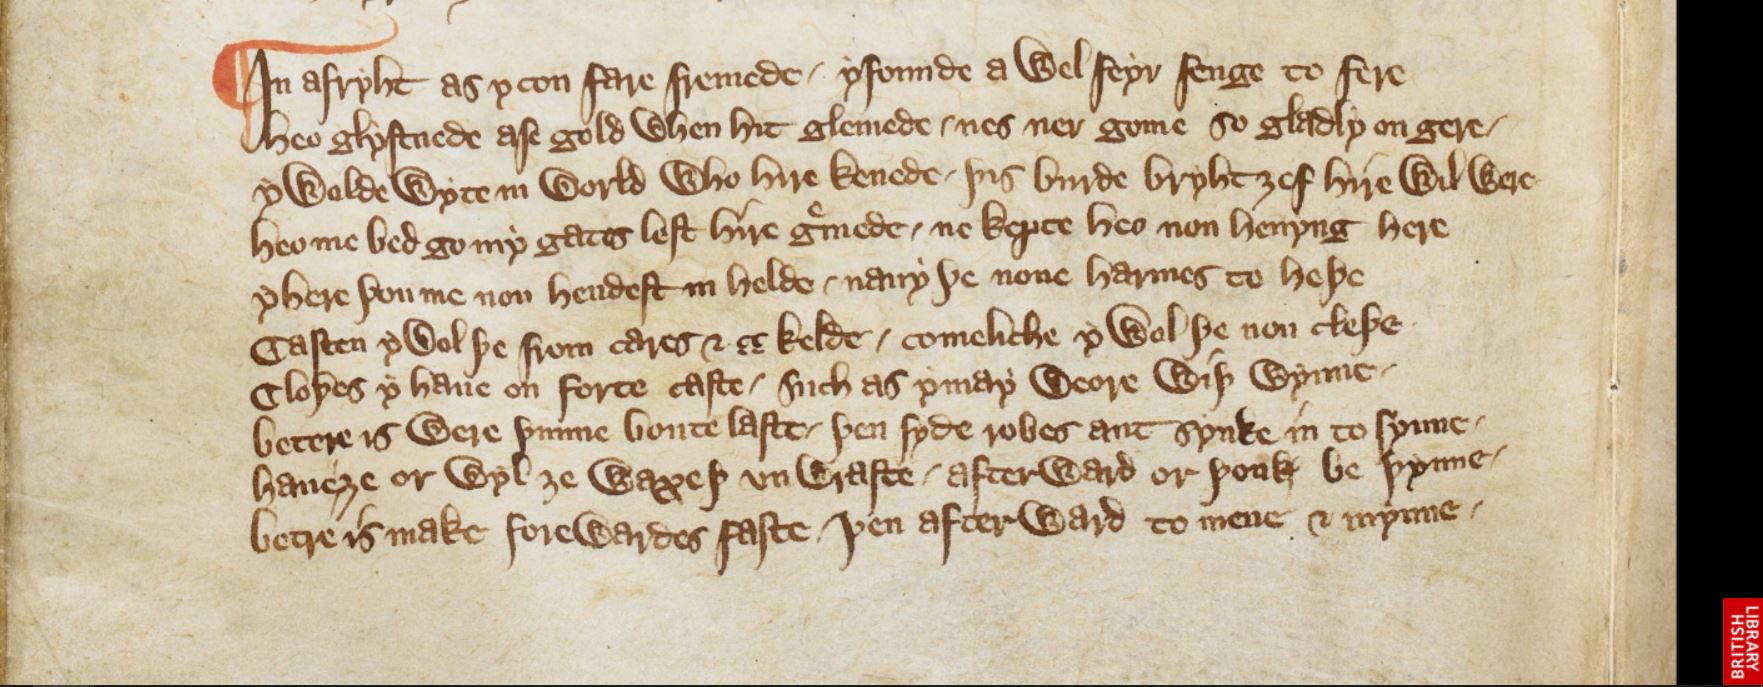 In a fryht as y con fare fremede / y founde a wel feyr fenge to fere
heo glystnede ase gold when hit glemede / nes ner gome so gladly on gere /
y wolde wyte in world who hire kenede / þis burde bryht ȝef hire wil were
heo me bed go my gates lest hire gͤmede / ne kepte heo non henyng here
yhere þou me nou hendest in helde / nauy þe none harmes to heþe
Casten y wol þe from cares ⁊ kelde / comeliche y wol þe nou cleþe
Cloþes y haue on forte caste / such as y may weore wiþ wynne /
betere is were þunne boute laste / þen syde robes ant synke in to synne /
haue ȝe or wyl ȝe waxeþ vn wraste / afterward or þonk be þynne /
betre is make forewardes faste / þen afterward to mene ⁊ mynne /
BRITISH
LIBRARY